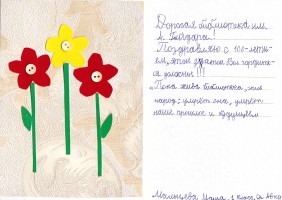 Дорогая библиотека им.
А. Гайдара!
Поздравляю с 105-лети-
ем, этой датой Вы гордить-
ся должны!!!
"Пока жива библиотека, жив
народ: умрёт она, умрёт
наше прошлое и будущее"
Маша, 1 класс,